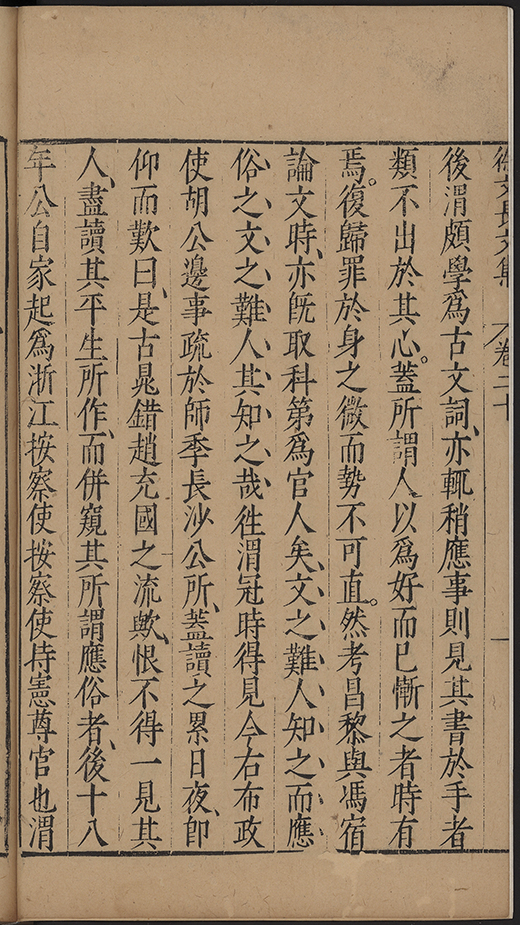 徐文長文集 卷二十 一
後渭頗學爲古文詞、亦輒稍應事則見其書於手者
類不出於其心。蓋所謂人以爲好而已慚之者時有
焉。復歸罪於身之微而勢不可直。然考昌黎與馮宿
論文時、亦既取科第爲官人矣、文之難人知之而應
俗之文之難人其知之哉徃渭冠時得見今右布政
使胡公邊事疏於師季長沙公所、蓋讀之累日夜、卽
仰而歎曰、是古晁錯趙充國之流歟、恨不得一見其
人、盡讀其平生所作、而併窺其所謂應俗者、後十八
年公自家起爲浙江按察使按察使持憲尊官也渭